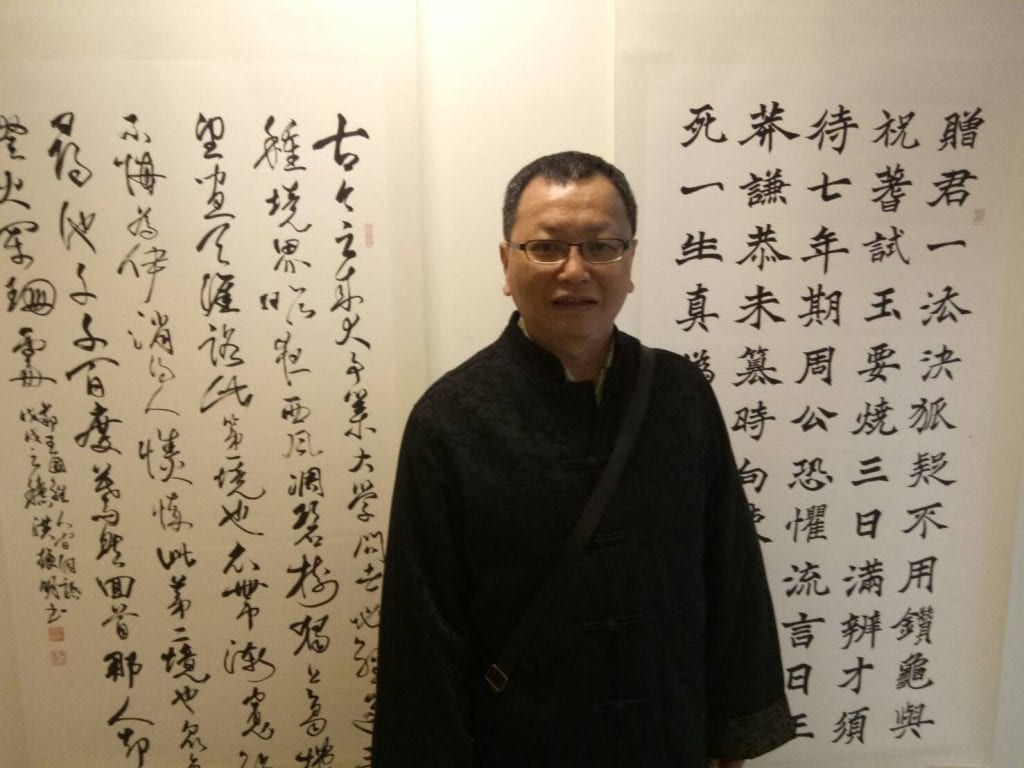 贈君一法決狐疑不用鑽龜與
祝蓍試玉要燒三日滿辨才須
待七年期周公恐懼流言日王
莽謙恭未篡時向
死一生真
古今之成大事業大学問者必經過三
種境界曰昨夜西風凋碧樹獨上高樓
望盡天涯路此第一境也衣帶漸寬終
不悔為伊消得人憔悴此第二境也眾
尋他千千百度驀然回首那人却
燈火闌珊處
王國維人間詞話
戊戌之穐洪振明書